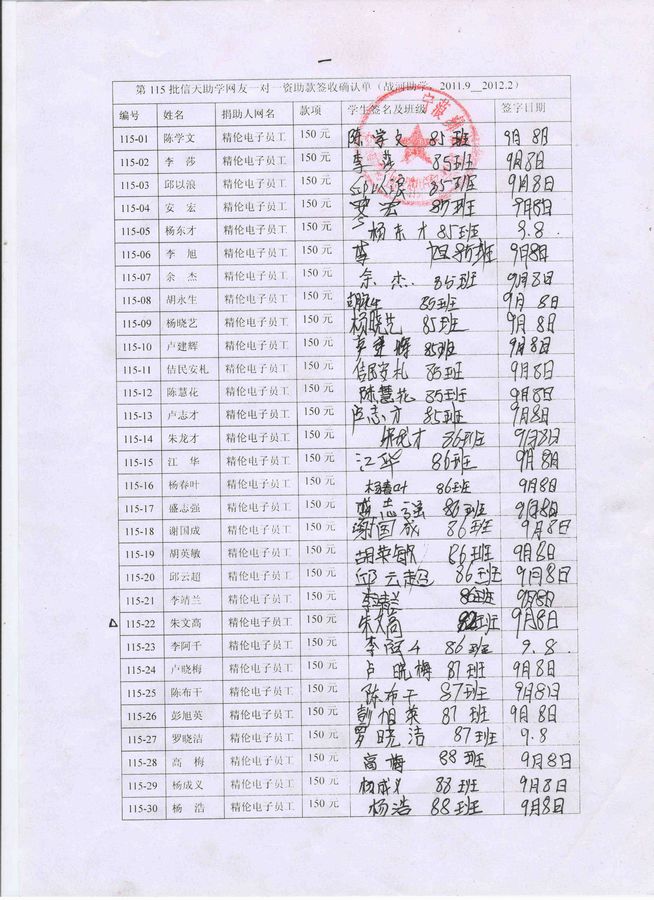 一
第 115 批信天助学网友一对一资助款签收确认单（战河助学：2011.9__2012.2）
编号 姓名 捐助人网名 款项 学生签名及班级 签字日期
115-01 陈学文 精伦电子员工 150 元 陈学文 85班 9月8日
115-02 李 莎 精伦电子员工 150 元 李莎 85班 9月8日
115-03 邱以浪 精伦电子员工 150 元 邱以浪 85班 9月8日
115-04 安 宏 精伦电子员工 150 元 安宏 87班 9月8日
115-05 杨东才 精伦电子员工 150 元 杨东才 85班 9.8.
115-06 李 旭 精伦电子员工 150 元 李旭 85班 9月8日
115-07 余 杰 精伦电子员工 150 元 余杰. 85班 9月8日
115-08 胡永生 精伦电子员工 150 元 85班 9月8日
115-09 杨晓艺 精伦电子员工 150 元 杨晓艺 85班 9月8日
115-10 卢建辉 精伦电子员工 150 元 85班 9月8日
115-11 佶民安札 精伦电子员工 150 元 佶民安札 85班 9月8日
115-12 陈慧花 精伦电子员工 150 元 陈慧花 85班 9月8日
115-13 卢志才 精伦电子员工 150 元 卢志才 85班 9月8日
115-14 朱龙才 精伦电子员工 150 元 朱龙才 86班 9月8日
115-15 江 华 精伦电子员工 150 元 江华 86班 9月8日
115-16 杨春叶 精伦电子员工 150 元 杨春叶 86班 9月8日
115-17 盛志强 精伦电子员工 150 元 盛志强 86班 9月8日
115-18 谢国成 精伦电子员工 150 元 谢国成 86班 9月8日
115-19 胡英敏 精伦电子员工 150 元 胡英敏 86班 9月8日
115-20 邱云超 精伦电子员工 150 元 邱云超 86班 9月8日
115-21 李靖兰 精伦电子员工 150 元 李靖兰 86班 9月8日
△ 115-22 朱文高 精伦电子员工 150 元 朱文高 班 9月8日
115-23 李阿千 精伦电子员工 150 元 李阿千 86班 9.8.
115-24 卢晓梅 精伦电子员工 150 元 卢晓梅 87班 9月8日
115-25 陈布干 精伦电子员工 150 元 陈布干 87班 9月8日
115-26 彭旭英 精伦电子员工 150 元 彭旭英 87班 9月8日
115-27 罗晓洁 精伦电子员工 150 元 罗晓洁 87班 9.8
115-28 高 梅 精伦电子员工 150 元 高梅 88班 9月8日
115-29 杨成义 精伦电子员工 150 元 杨成义 88班 9月8日
115-30 杨 浩 精伦电子员工 150 元 杨浩 88班 9月8日